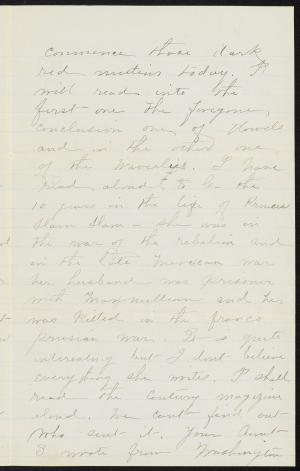 commence those dark
red mittens today. I
will read into the
first one The Foregone
conclusion one of Howels
and in the other one
of the Waverlys. I have
read aloud to the
10 years in the life of Princess
Salm Salm - she was in
the war of the rebelion and
in the late Mexican war
her husband was prisoner
with Maxmillian and he
was killed in the franco
prusian war. It is quite
interesting but I dont believe
everything she writes. I shall
read the century magizine
aloud. We cant find out
who sent it. Your Aunt
S wrote from Washington